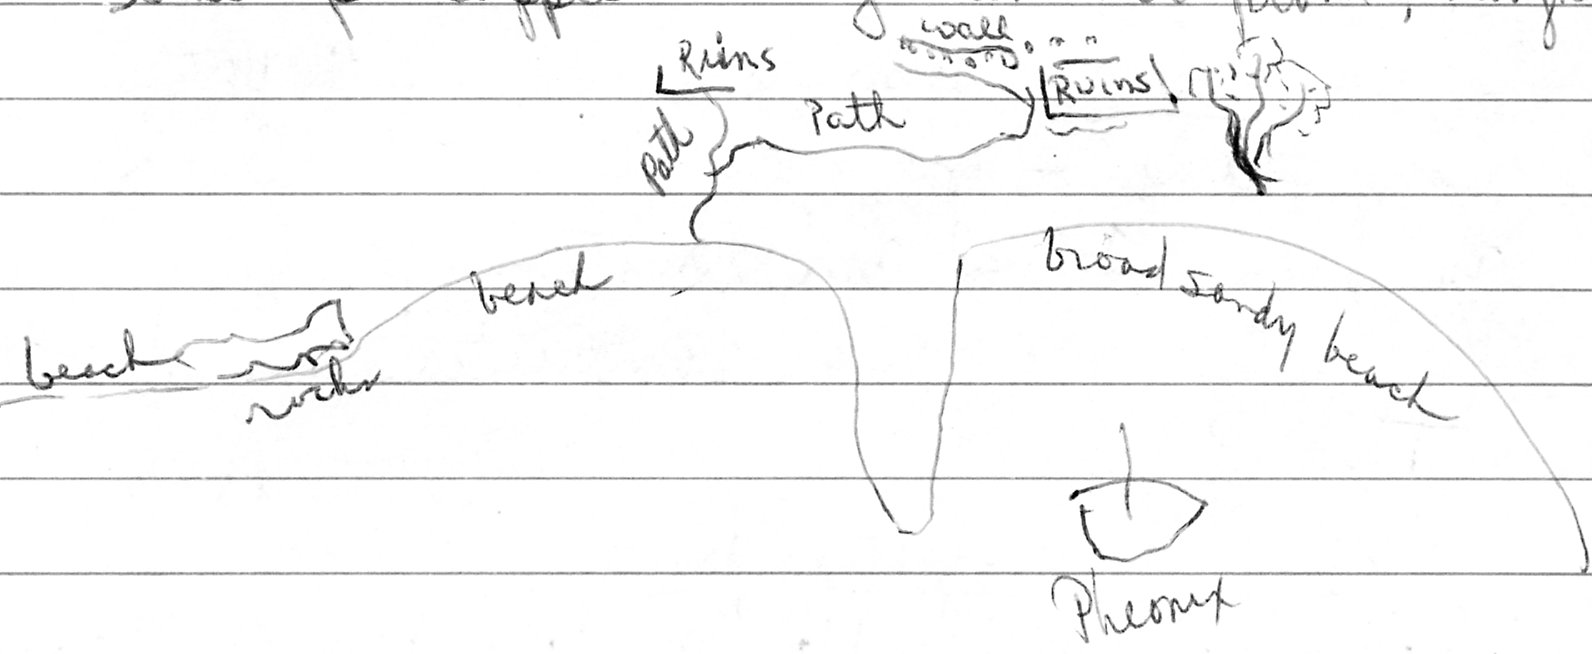 wall
Ruins
Ruins
Path
Path
beach
broad sandy beach
beach
rocks
Pheonix